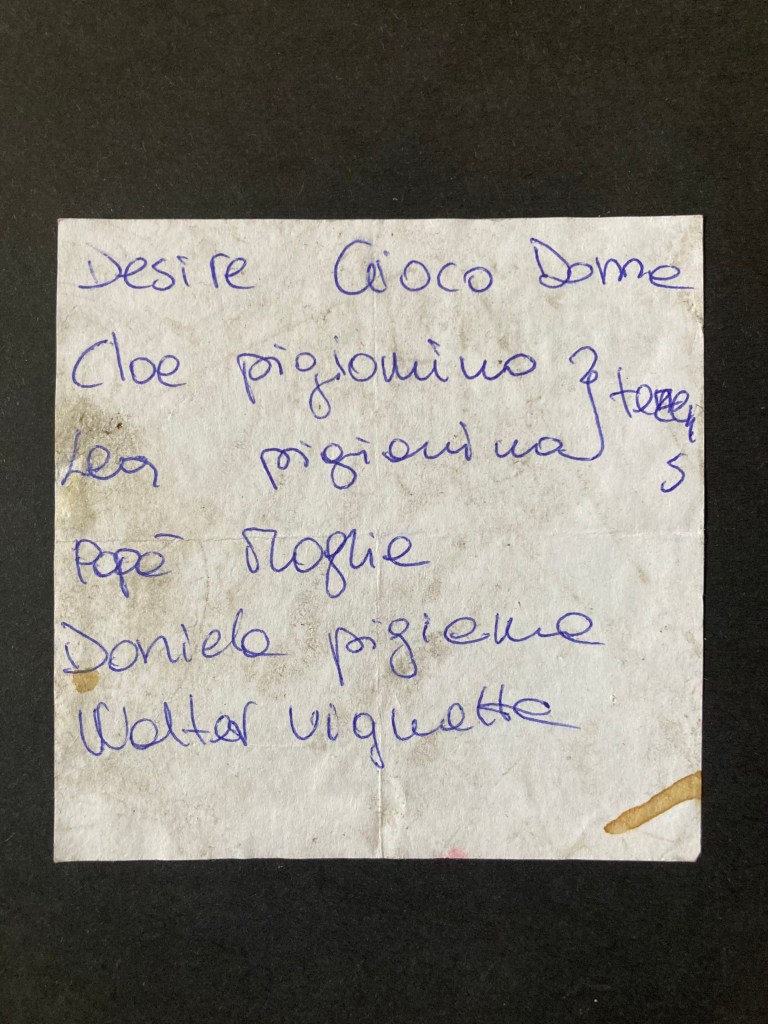 Desire Gioco Donne
Cloe pigiomino
Lea pigiomina
Papà Moglie
Daniela pigiama
Walter vignette